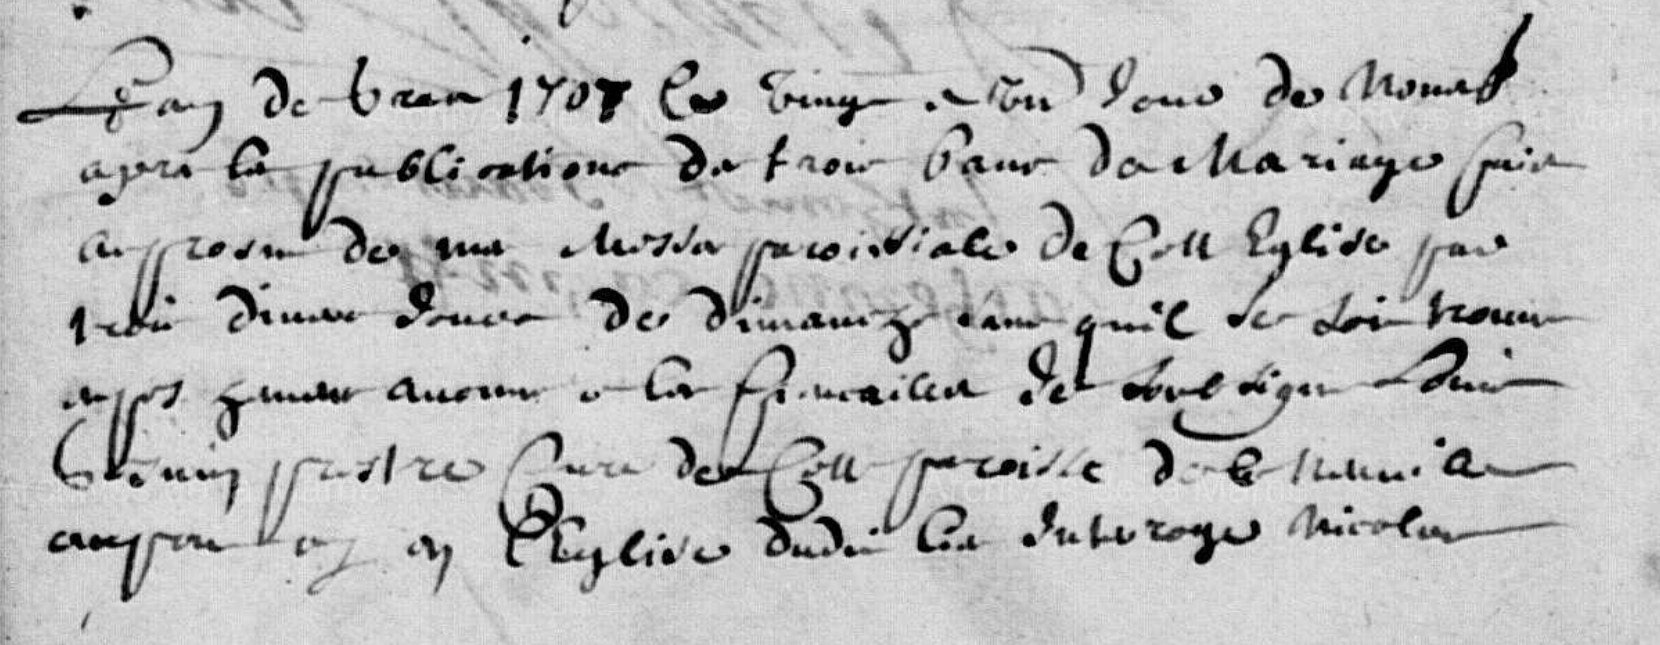 Lan de grace 1707 le vingt et un Jour de Nouemb
apres la publications de trois bans de Mariage faite
au prosne de ma Messe paroissiale de Cette Eglise par
trois diuers Jours de dimanche sans quil se soit trouue
empeschement aucune a les fiancailles Je soubsigne Louis
prestre Cure de Cette paroisse de
en l'Eglise dudit lieu Interoge Nicolas